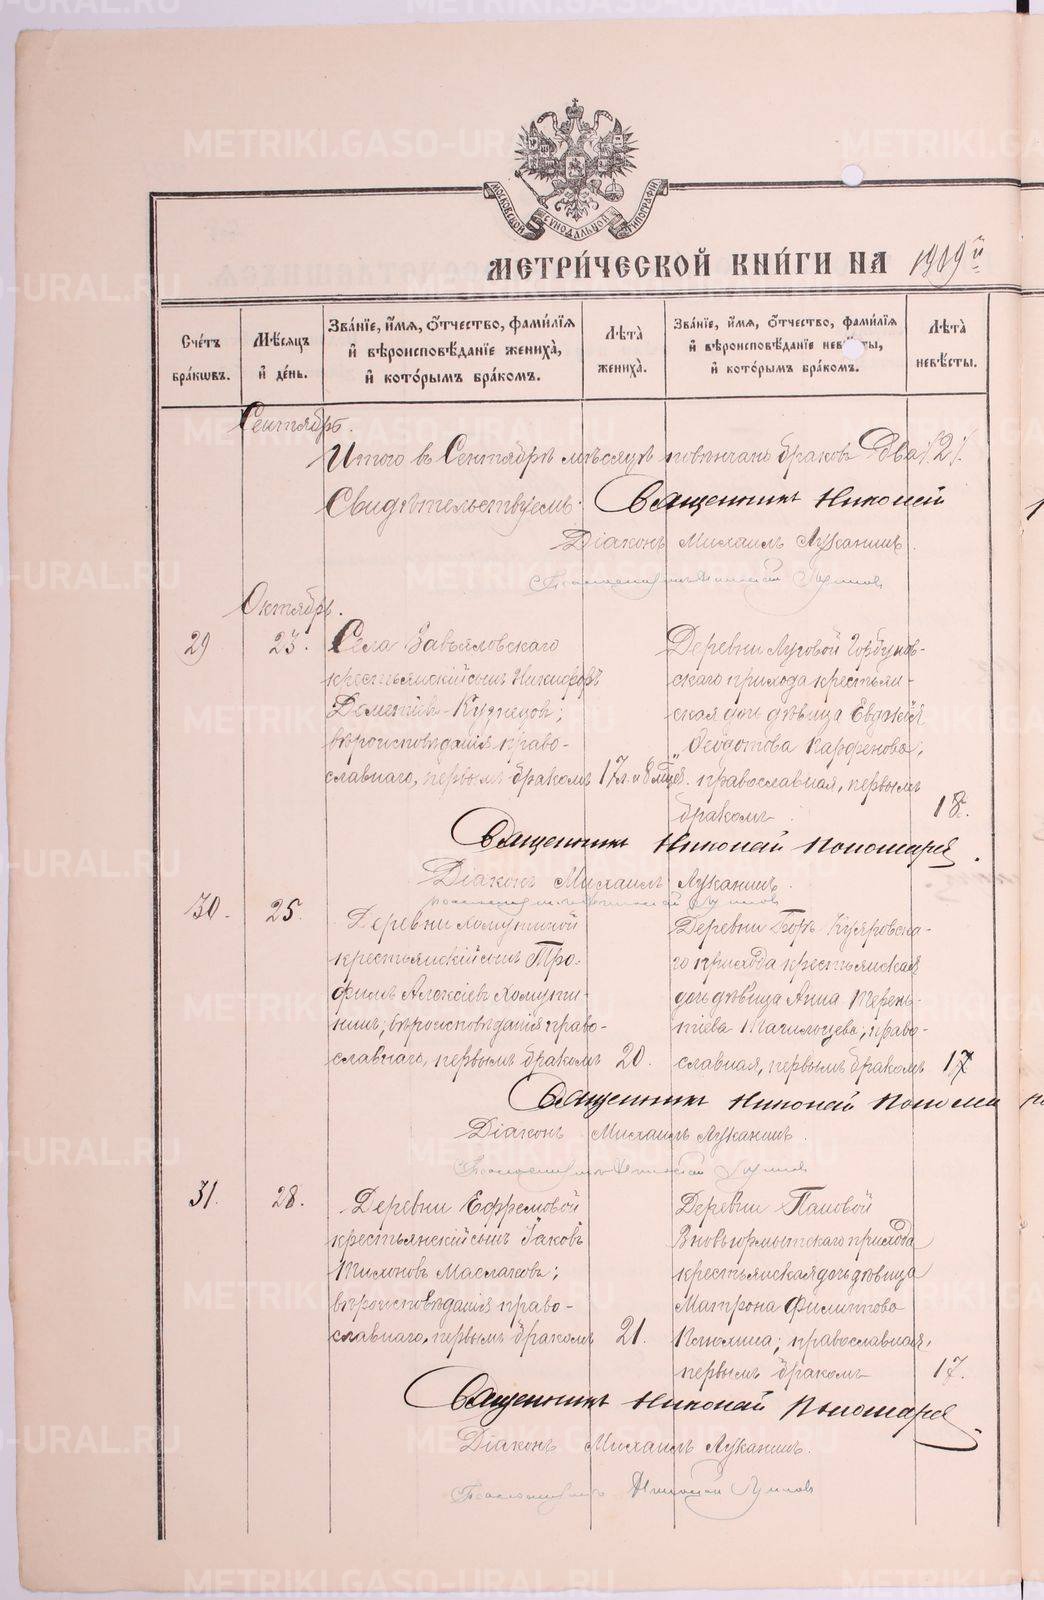 МОСКОВСКОЙ СѴНОДАЛЬНОЙ ТИПОГРАФІИ
МЕТРИ́ЧЕСКОЙ КНИ́ГИ НА 1909й
Сче́тъ бра́кωвъ.
Мѣ́сяцъ и́ де́нь.
Зва́нїе, и́мя, ѻ́тчество, фами́лїя и́ вѣроисповѣ́данїе жениха̀, и́ кото́рымъ бра́комъ.
Лѣ́та̀ жениха̀.
Зва́нїе, и́мя, ѻ́тчество, фами́лїя и́ вѣроисповѣ́данїе невѣ́сты, и́ кото́рымъ бра́комъ.
Лѣ́та̀ невѣ́сты.
Сентябрь.
Итого въ Сентябрѣ мѣсяцѣ повѣнчано браковъ Два /2/.
Свидѣтельствуемъ: Священникъ Николай
Діаконъ Михаилъ Луканинъ.
Октябрь.
29
23.
Села Завьяловскаго
крестьянскій сынъ Никифоръ
Дометіевъ Кузнецовъ;
вѣроисповѣданія право-
славнаго, первымъ бракомъ
17 л. и 8 мцев.
Деревни Луговой Горбунов-
скаго прихода крестьян-
ская дочь дѣвица Евдокія
Ѳеодотова Парфенова,
православная, первымъ
бракомъ
18.
Священникъ Николай Пономарев
Діаконъ Михаилъ Луканинъ.
30.
25.
Деревни Хомутиной
крестьянскій сынъ Тро-
фимъ Алексіевъ Хомути-
нинъ, вѣроисповѣданія право-
славнаго, первымъ бракомъ
20.
Деревни Боръ Куяровска-
го прихода крестьянская
дочь дѣвица Анна Терень-
тіева Тагильцева, право-
славная, первымъ бракомъ
17
Священникъ Николай Понома
Діаконъ Михаилъ Луканинъ.
31.
28.
Деревни Ефремовой
крестьянскій сынъ Іаковъ
Тихоновъ Маслаковъ;
вѣроисповѣданія право-
славнаго, первымъ бракомъ
21.
Деревни Пановой
Вновьюрмытскаго прихода
крестьянская дочь дѣвица
Матрона Филиппова
православная,
первымъ бракомъ
17.
Священникъ Николай Пономарев
Діаконъ Михаилъ Луканинъ.
METRIKI.GASO-URAL.RU